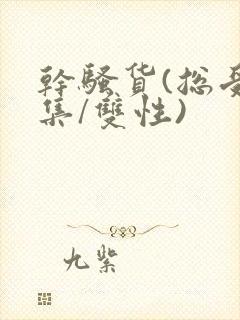 幹騷货(总受
集/雙性)
九紫